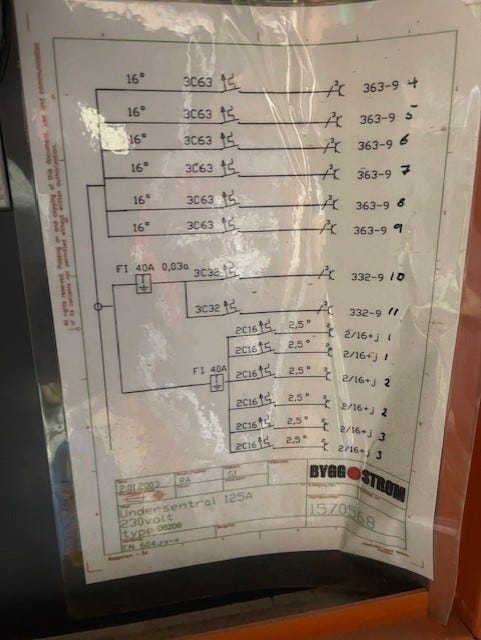 16° 3C63 363-9 4
16° 3C63 363-9 5
16° 3C63 363-9 6
16° 3C63 363-9 7
16° 3C63 363-9 8
16° 3C63 363-9 9
FI 40A 0,03a 3C32 332-9 10
3C32 332-9 11
2C16 2,5° 2/16+j 1
2C16 2,5° 2/16+j 1
FI 40A 2C16 2,5° 2/16+j 2
2C16 2,5° 2/16+j 2
2C16 2,5° 2/16+j 3
2C16 2,5° 2/16+j 3
All rights reserved. Passing on and copying of this document, use and communication
of its contents not permitted without written authorization.
2.01.2003 RA GI
BYGG STRØM
Undersentral 125A
230volt
type 06206
1570568